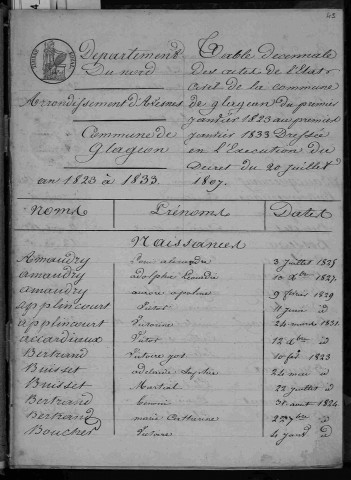 43
Département
Du nord
Arrondissement d'Avesnes
Commune de
Glageon
an 1823 à 1833.
Table Decennale
des actes de l'Etat
civil de la commune
de glageon du premier
janvier 1823 au premier
janvier 1833 Dressée
en l'Execution du
Decret du 20 juillet
1807.
Noms Prénoms Dates
Naissances
Amaudry alexandre 3 juillet 1825
amaudry adolphe 10 Xbre 1827.
amaudry apoline 9 fevrier 1829
applincourt Victor
applincourt 24 mars 1831.
accardiaux Victor 12 Xbre d
Bertrand Victoire 10 1823
Buisset adelaide Sophie 24 mai d
Buisset Martial 22 juillet d
Bertrand 31 aout 1824
Bertrand marie d
Boucher Victoire 4 d